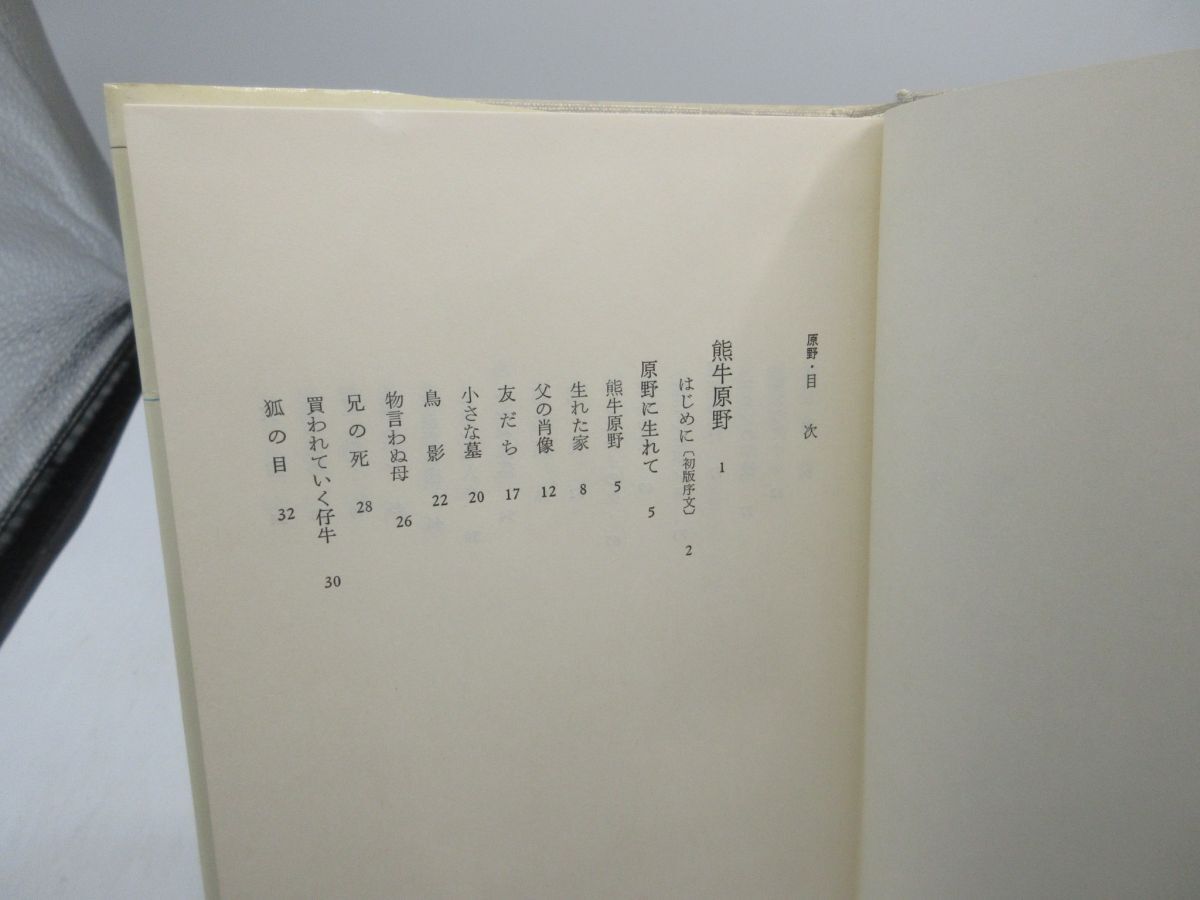 原野・目 次
熊牛原野 1
はじめに〔初版序文〕 2
原野に生れて 5
熊牛原野 5
生れた家 8
父の肖像 12
友だち 17
小さな墓 20
鳥 影 22
物言わぬ母 26
兄の死 28
買われていく仔牛 30
狐の目 32